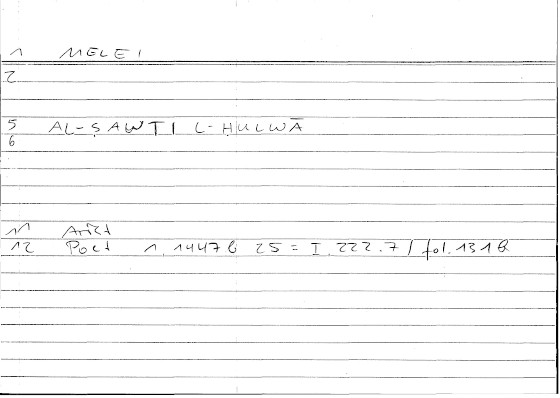 1 MELEI
2
5 AL-ṢAWTI L-ḤULWĀ
6
11 Arist
12 Poet 1.1447b 25 = I.222.7 / fol.131b